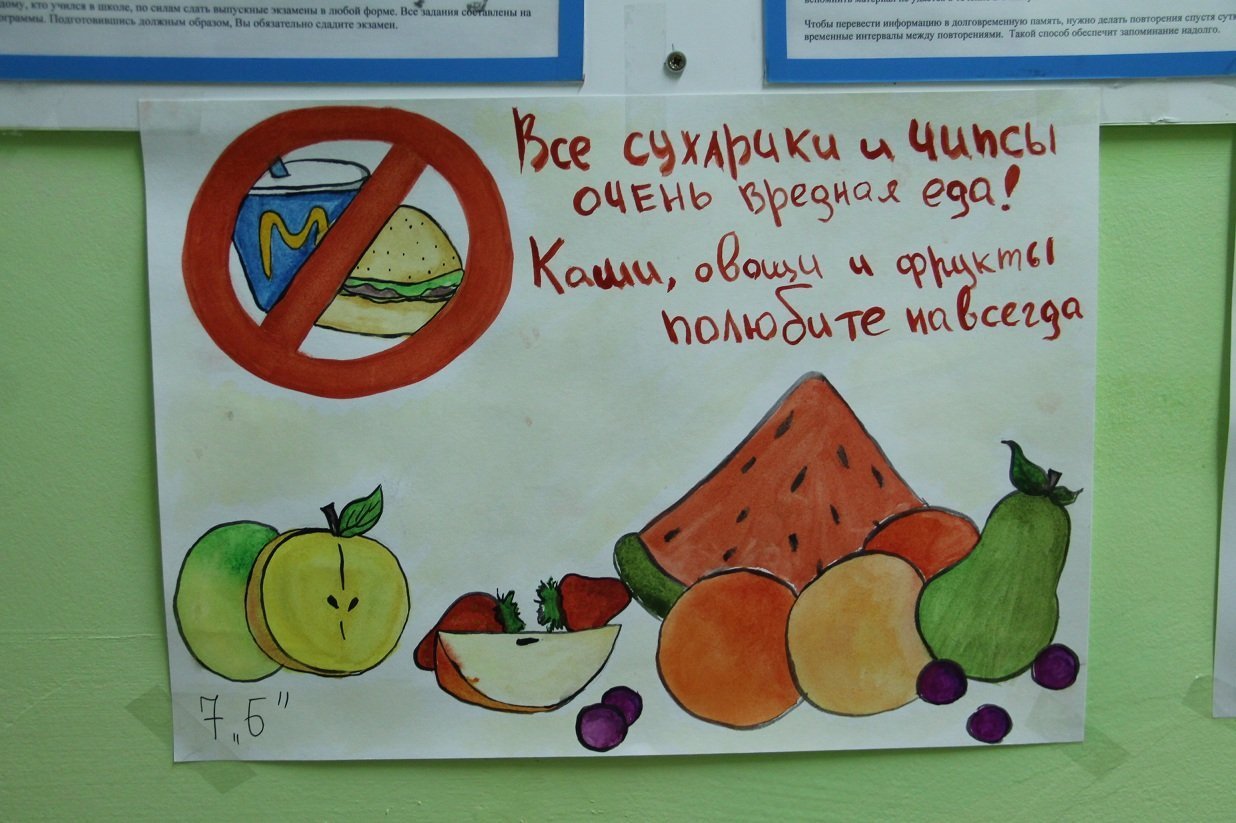 дому, кто учился в школе, по силам сдать выпускные экзамены в любой форме. Все задания составлены на
ограммы. Подготовившись должным образом, Вы обязательно сдадите экзамен.
Чтобы перевести информацию в долговременную память, нужно делать повторения спустя сутк
временные интервалы между повторениями. Такой способ обеспечит запоминание надолго.
Все сухарики и чипсы
очень вредная еда!
Каши, овощи и фрукты
полюбите навсегда
M
7 „Б"